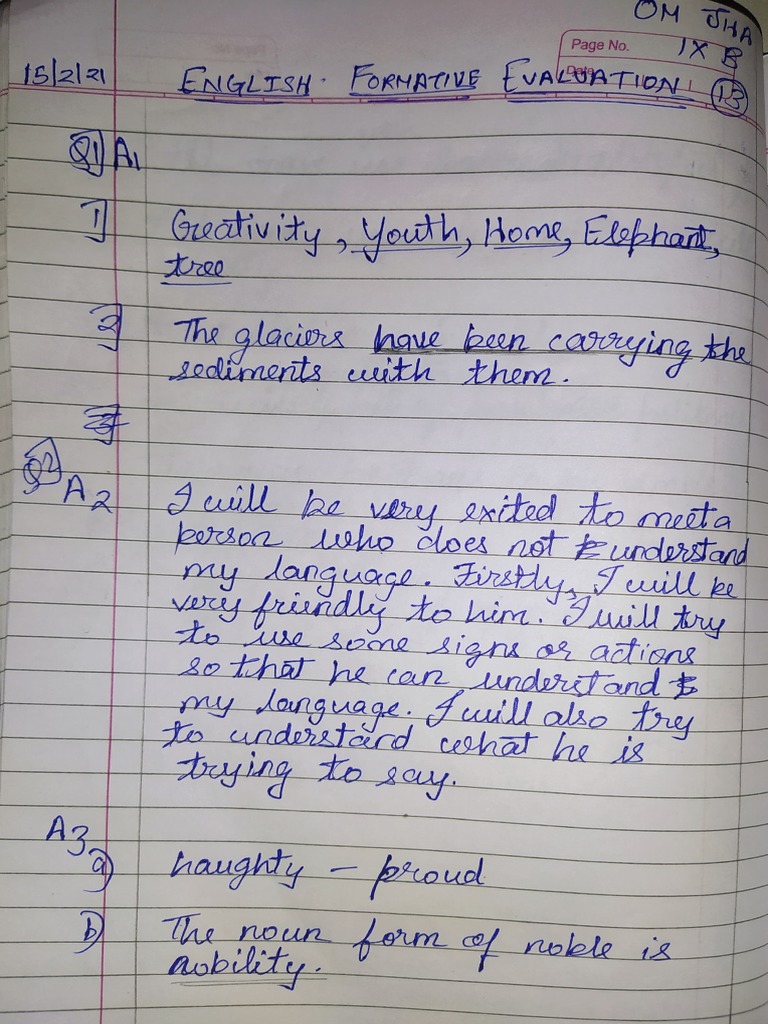 OM JHA
Page No. IX B
Date
15/2/21 ENGLISH FORMATIVE EVALUATION 13
Q1] A1
1] Creativity, Youth, Home, Elephant,
tree
2] The glaciers have been carrying the
sediments with them.
3]
Q2]
A2 I will be very exited to meet a
person who does not understand
my language. Firstly, I will be
very friendly to him. I will try
to use some signs or actions
so that he can understand
my language. I will also try
to understand what he is
trying to say.
A3
a) haughty – proud
b) The noun form of noble is
nobility.